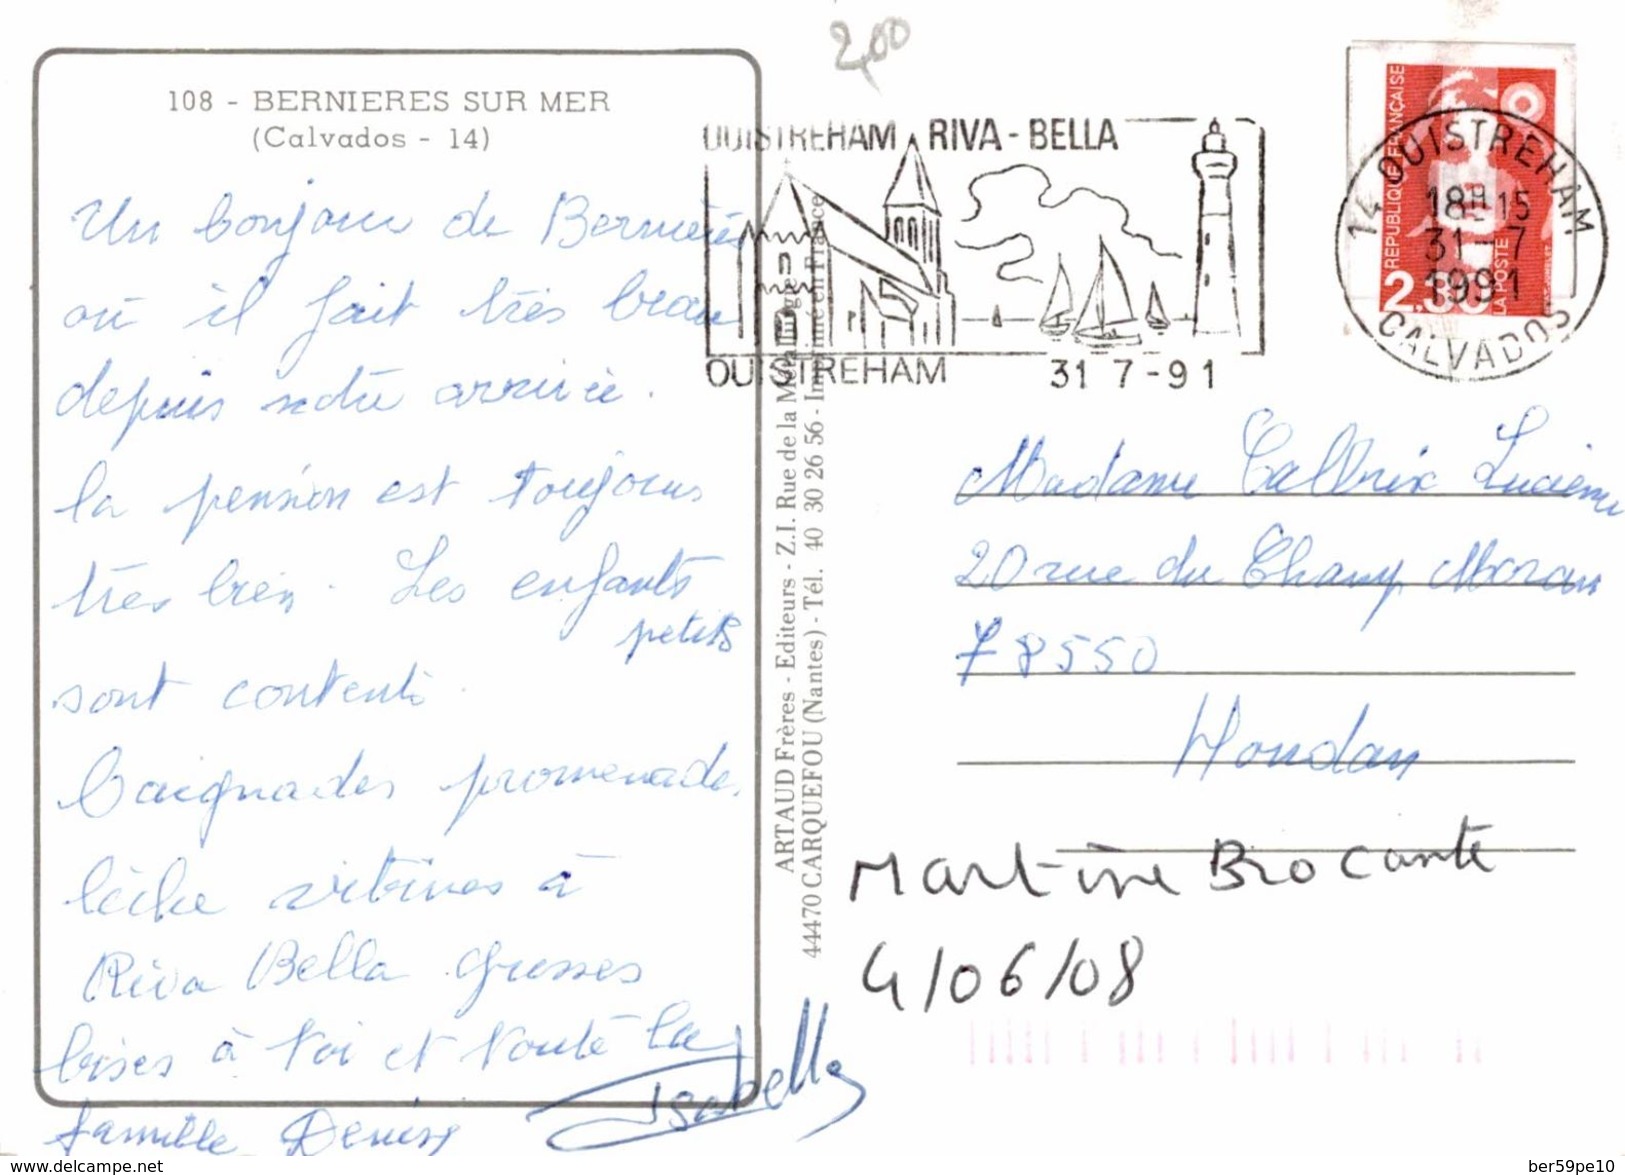 2,00
108 - BERNIERES SUR MER
(Calvados - 14)
Un bonjour de Bernières
où il fait très beau
depuis notre arrivée.
la pension est toujours
très bien. Les enfants
petits
sont contents.
baignades promenade,
lèche vitrines à
Riva Bella grosses
bises à toi et toute la
famille Denise
Isabelle
ARTAUD Frères - Editeurs - Z.I. Rue de la Métallurgie
44470 CARQUEFOU (Nantes) - Tél. 40 30 26 56 - Imprimé en France
OUISTREHAM RIVA-BELLA
OUISTREHAM 31 7-91
RÉPUBLIQUE FRANÇAISE
2,30
LA POSTE
14 OUISTREHAM
18H15
31-7
1991
CALVADOS
Madame Callbrix Lucienne
20 rue du Champ Moran
78550
Houdan
Martine Brocante
4/06/08
www.delcampe.net
ber59pe10